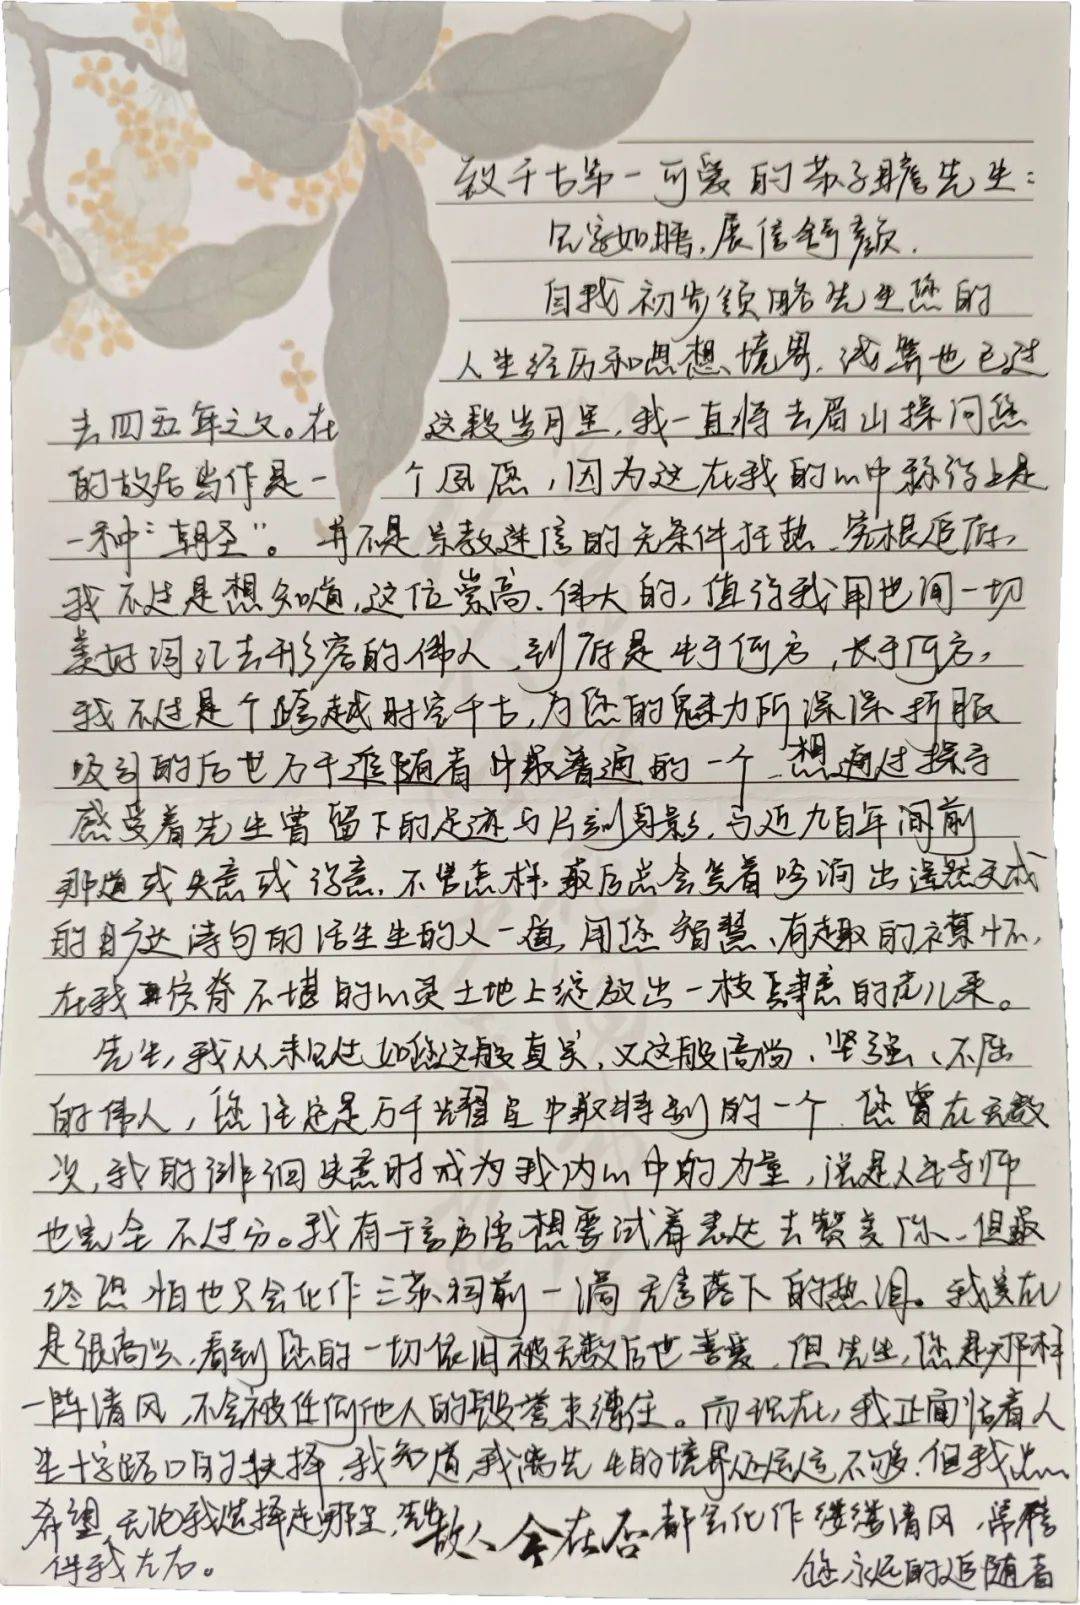 致千古第一可爱的苏子瞻先生：
见字如晤，展信舒颜。
自我初步领略先生您的
人生经历和思想境界，浅算也已过
去四五年之久。在这段岁月里，我一直将去眉山探问您
的故居当作是一个夙愿，因为这在我的心中称得上是
一种“朝圣”。并不是宗教迷信的无条件狂热，究根追底，
我不过是想知道，这位崇高、伟大的，值得我用世间一切
美好词汇去形容的伟人，到底是生于何方，长于何方，
我不过是个跨越时空千古，为您的魅力所深深折服
吸引的后世万千追随者中最普通的一个，想通过探寻
感受着先生曾留下的足迹与片刻身影，与近九百年间前
那道或失意或得意，不管怎样最后总会笑着吟润出遥然天成
的旷达诗句的活生生的人一道，用您智慧、有趣的襟怀，
在我贫瘠不堪的心灵土地上绽放出一枝肆意的花儿来。
先生，我从未见过如您这般真实，又这般高尚、坚强、不屈
的伟人，您注定是万千耀星中最特别的一个，您曾在无数
次，我的徘徊失意时成为我内心中的力量，说是人生导师
也完全不过分。我有千言万语想要试着表达去赞美你，但最
终恐怕也只会化作三苏祠前一滴无言落下的热泪。我实在
是很高兴，看到您的一切依旧被无数后世喜爱，但先生，您是那样
一阵清风，不会被任何他人的毁誉束缚住。而现在，我正面临着人
生十字路口的抉择，我知道，我离先生的境界还远远不够，但我
希望，无论我选择走哪里，先生都会化作缕缕清风，常
伴我左右。
故人今在否
您永远的追随者